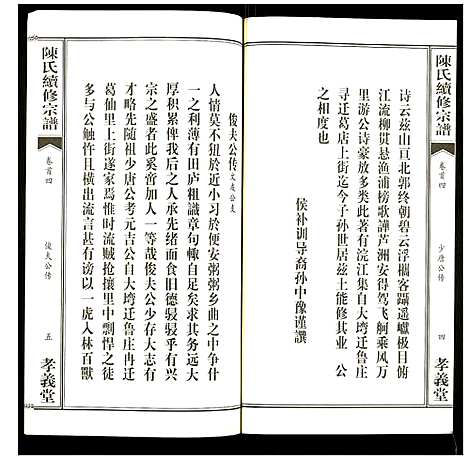 陳氏續修宗譜
卷首四
少唐公傳
四
孝義堂
诗云兹山亘北郭终朝碧云浮搁客蹑遥巘极目俯
江流柳贯悬渔浦榜歌譁芦洲安得驾飞舸乘风万
里游公诗豪放多类此著有浣江集自大塆迁鲁庄
寻迁葛店上街迄今子孙世居兹土能修其业 公
之相度也
候补训导裔孙中豫谨譔
陳氏續修宗譜
卷首四
俊夫公傳
五
孝義堂
俊夫公传
人情莫不狃於近小习於便安粥粥乡曲之中争什
一之利薄有田庐粗識章句輒自足矣求其务远大
厚积累俾我后之人承先绪而食旧德駸駸乎有兴
宗之盛者此奚啻加人一等哉俊夫公少存大志有
才略先随祖少唐公考元吉公自大塆迁鲁庄冉迁
葛仙里上街遂家焉惟时流贼抢攘里中剽悍之徒
多与公触忤且横出流言甚有谤以一虎入林百獸